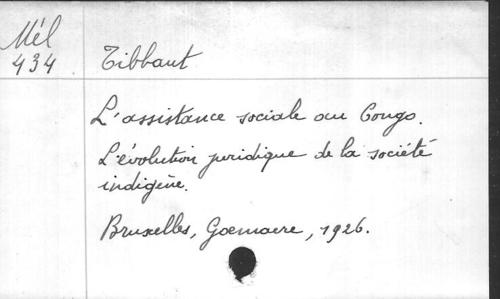 Mél
434
Tibbaut
L'assistance sociale au Congo.
L'évolution juridique de la société
indigène.
Bruxelles, Goemaere, 1926.